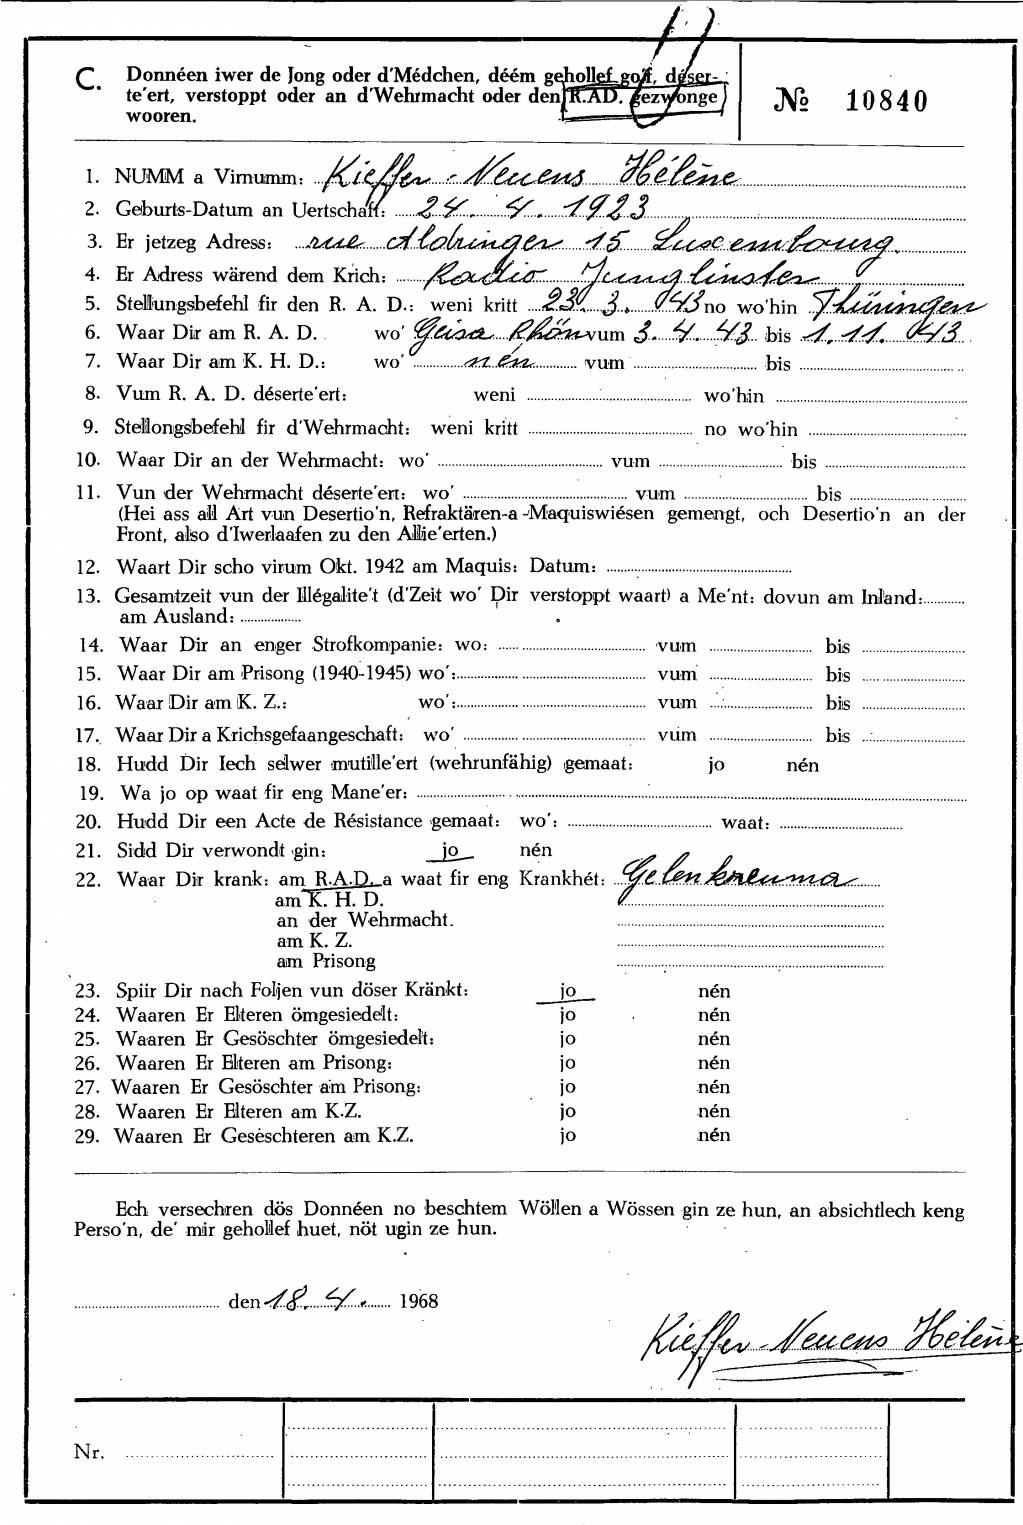 C. Donnéen iwer de Jong oder d'Médchen, déém gehollef goff, déser-
te'ert, verstoppt oder an d'Wehrmacht oder den R.AD. gezwonge
wooren.
№ 10840
1. NUMM a Virnumm: Kieffer-Neuens Hélène
2. Geburts-Datum an Uertschaft: 24. 4. 1923
3. Er jetzeg Adress: rue Aldringer 15 Luxembourg.
4. Er Adress wärend dem Krich: Radio Junglinster
5. Stellungsbefehl fir den R. A. D.: weni kritt 23. 3. 043 no wo'hin Thüringen
6. Waar Dir am R. A. D. wo' Geisa Rhön vum 3. 4. 43 bis 1. 11. 043
7. Waar Dir am K. H. D.: wo' nén vum bis
8. Vum R. A. D. déserte'ert: weni wo'hin
9. Stellongsbefehl fir d'Wehrmacht: weni kritt no wo'hin
10. Waar Dir an der Wehrmacht: wo' vum bis
11. Vun der Wehrmacht déserte'ert: wo' vum bis
(Hei ass all Art vun Desertio'n, Refraktären-a -Maquiswiésen gemengt, och Desertio'n an der
Front, also d'Iwerlaafen zu den Allie'erten.)
12. Waart Dir scho virum Okt. 1942 am Maquis: Datum:
13. Gesamtzeit vun der Illégalite't (d'Zeit wo' Dir verstoppt waart) a Me'nt: dovun am Inland:
am Ausland:
14. Waar Dir an enger Strofkompanie: wo: vum bis
15. Waar Dir am Prisong (1940-1945) wo': vum bis
16. Waar Dir am K. Z.: wo': vum bis
17. Waar Dir a Krichsgefaangeschaft: wo' vum bis
18. Hudd Dir Iech selwer mutille'ert (wehrunfähig) gemaat: jo nén
19. Wa jo op waat fir eng Mane'er:
20. Hudd Dir een Acte de Résistance gemaat: wo': waat:
21. Sidd Dir verwondt gin: jo nén
22. Waar Dir krank: am R.A.D. a waat fir eng Krankhét: Gelenkneuma
am K. H. D.
an der Wehrmacht.
am K. Z.
am Prisong
23. Spiir Dir nach Foljen vun döser Kränkt: jo nén
24. Waaren Er Elteren ömgesiedelt: jo nén
25. Waaren Er Gesöschter ömgesiedelt: jo nén
26. Waaren Er Elteren am Prisong: jo nén
27. Waaren Er Gesöschter am Prisong: jo nén
28. Waaren Er Elteren am K.Z. jo nén
29. Waaren Er Geseschteren am K.Z. jo nén
Ech versechren dös Donnéen no beschtem Wöllen a Wössen gin ze hun, an absichtlech keng
Perso'n, de' mir gehollef huet, nöt ugin ze hun.
den 18. 4. 1968
Kieffer-Neuens Hélène
Nr.